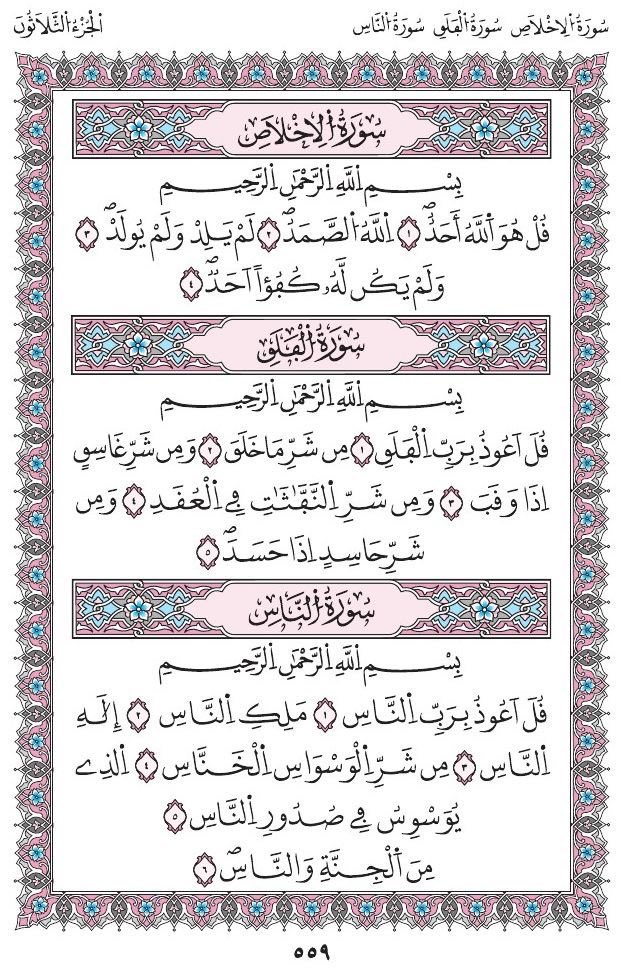 سُورَةُ الِاخْلَاصِ سُورَةُ الْفَلَقِ سُورَةُ النَّاسِ
الْجُزْءُ الثَّلَاثُونَ
سُورَةُ الِاخْلَاصِ
بِسْمِ اللَّهِ الرَّحْمَٰنِ الرَّحِيمِ
قُلْ هُوَ اَللَّهُ أَحَدٌ ۖ ١ اِللَّهُ الصَّمَدُ ۖ ٢ لَمْ يَلِدْ وَلَمْ يُولَدْ ۖ ٣
وَلَمْ يَكُن لَّهُۥ كُفُؤاً اَحَدٌ ۖ ٤
سُورَةُ الْفَلَقِ
بِسْمِ اللَّهِ الرَّحْمَٰنِ الرَّحِيمِ
قُلَ اَعُوذُ بِرَبِّ اِلْفَلَقِ ١ مِن شَرِّ مَا خَلَقَ ٢ وَمِن شَرِّ غَاسِقٍ
اِذَا وَقَبَ ٣ وَمِن شَرِّ اِلنَّفَّٰثَٰتِ فِے اِلْعُقَدِ ٤ وَمِن
شَرِّ حَاسِدٍ اِذَا حَسَدَ ۖ ٥
سُورَةُ النَّاسِ
بِسْمِ اللَّهِ الرَّحْمَٰنِ الرَّحِيمِ
قُلَ اَعُوذُ بِرَبِّ اِلنَّاسِ ١ مَلِكِ اِلنَّاسِ ٢ إِلَٰهِ
اِلنَّاسِ ٣ مِن شَرِّ اِلْوَسْوَاسِ اِلْخَنَّاسِ ٤ اِلذِے
يُوَسْوِسُ فِے صُدُورِ اِلنَّاسِ ٥
مِنَ اَلْجِنَّةِ وَالنَّاسِ ۖ ٦
٥٥٩